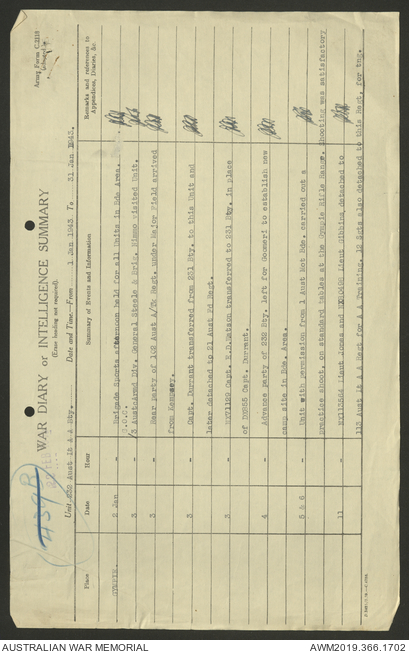 Army Form C.2118
WAR DIARY or INTELLIGENCE SUMMARY
(Erase heading not required).
Unit 232 Aust Lt A A Bty. Date and Time:—From 1 Jan 1943 To 31 Jan 1943.
Place Date Hour Summary of Events and Information Remarks and references to
Appendices, Diaries, &c
GYMPIE. 2 Jan - Brigade Sports afternoon held for all Units in Bde Area.
3 - Aust Armd Div. General Steele & Brig. Nimmo visited Unit.
3 - Rear party of 108 Aust A/Tk Regt. under Major Field arrived
from Kempsey.
3 - Capt. Durrant transferred from 231 Bty. to this Unit and
later detached to 21 Aust Fd Regt.
3 - Capt. Watson transferred to 231 Bty. in place
of Capt. Durrant.
4 - Advance party of 232 Bty. left for Goomeri to establish new
camp site in Bde. Area.
5 & 6 - Unit with permission from 1 Aust Mot Bde. carried out a
practice shoot, on standard tables at the Gympie Rifle Range. Shooting was satisfactory
11 - Lieut Jones and Lieut Gibbins detached to
113 Aust Lt A A Regt for A A Training. 12 Sgts also detached to this Regt. for tng.
AUSTRALIAN WAR MEMORIAL AWM2019.366.1702